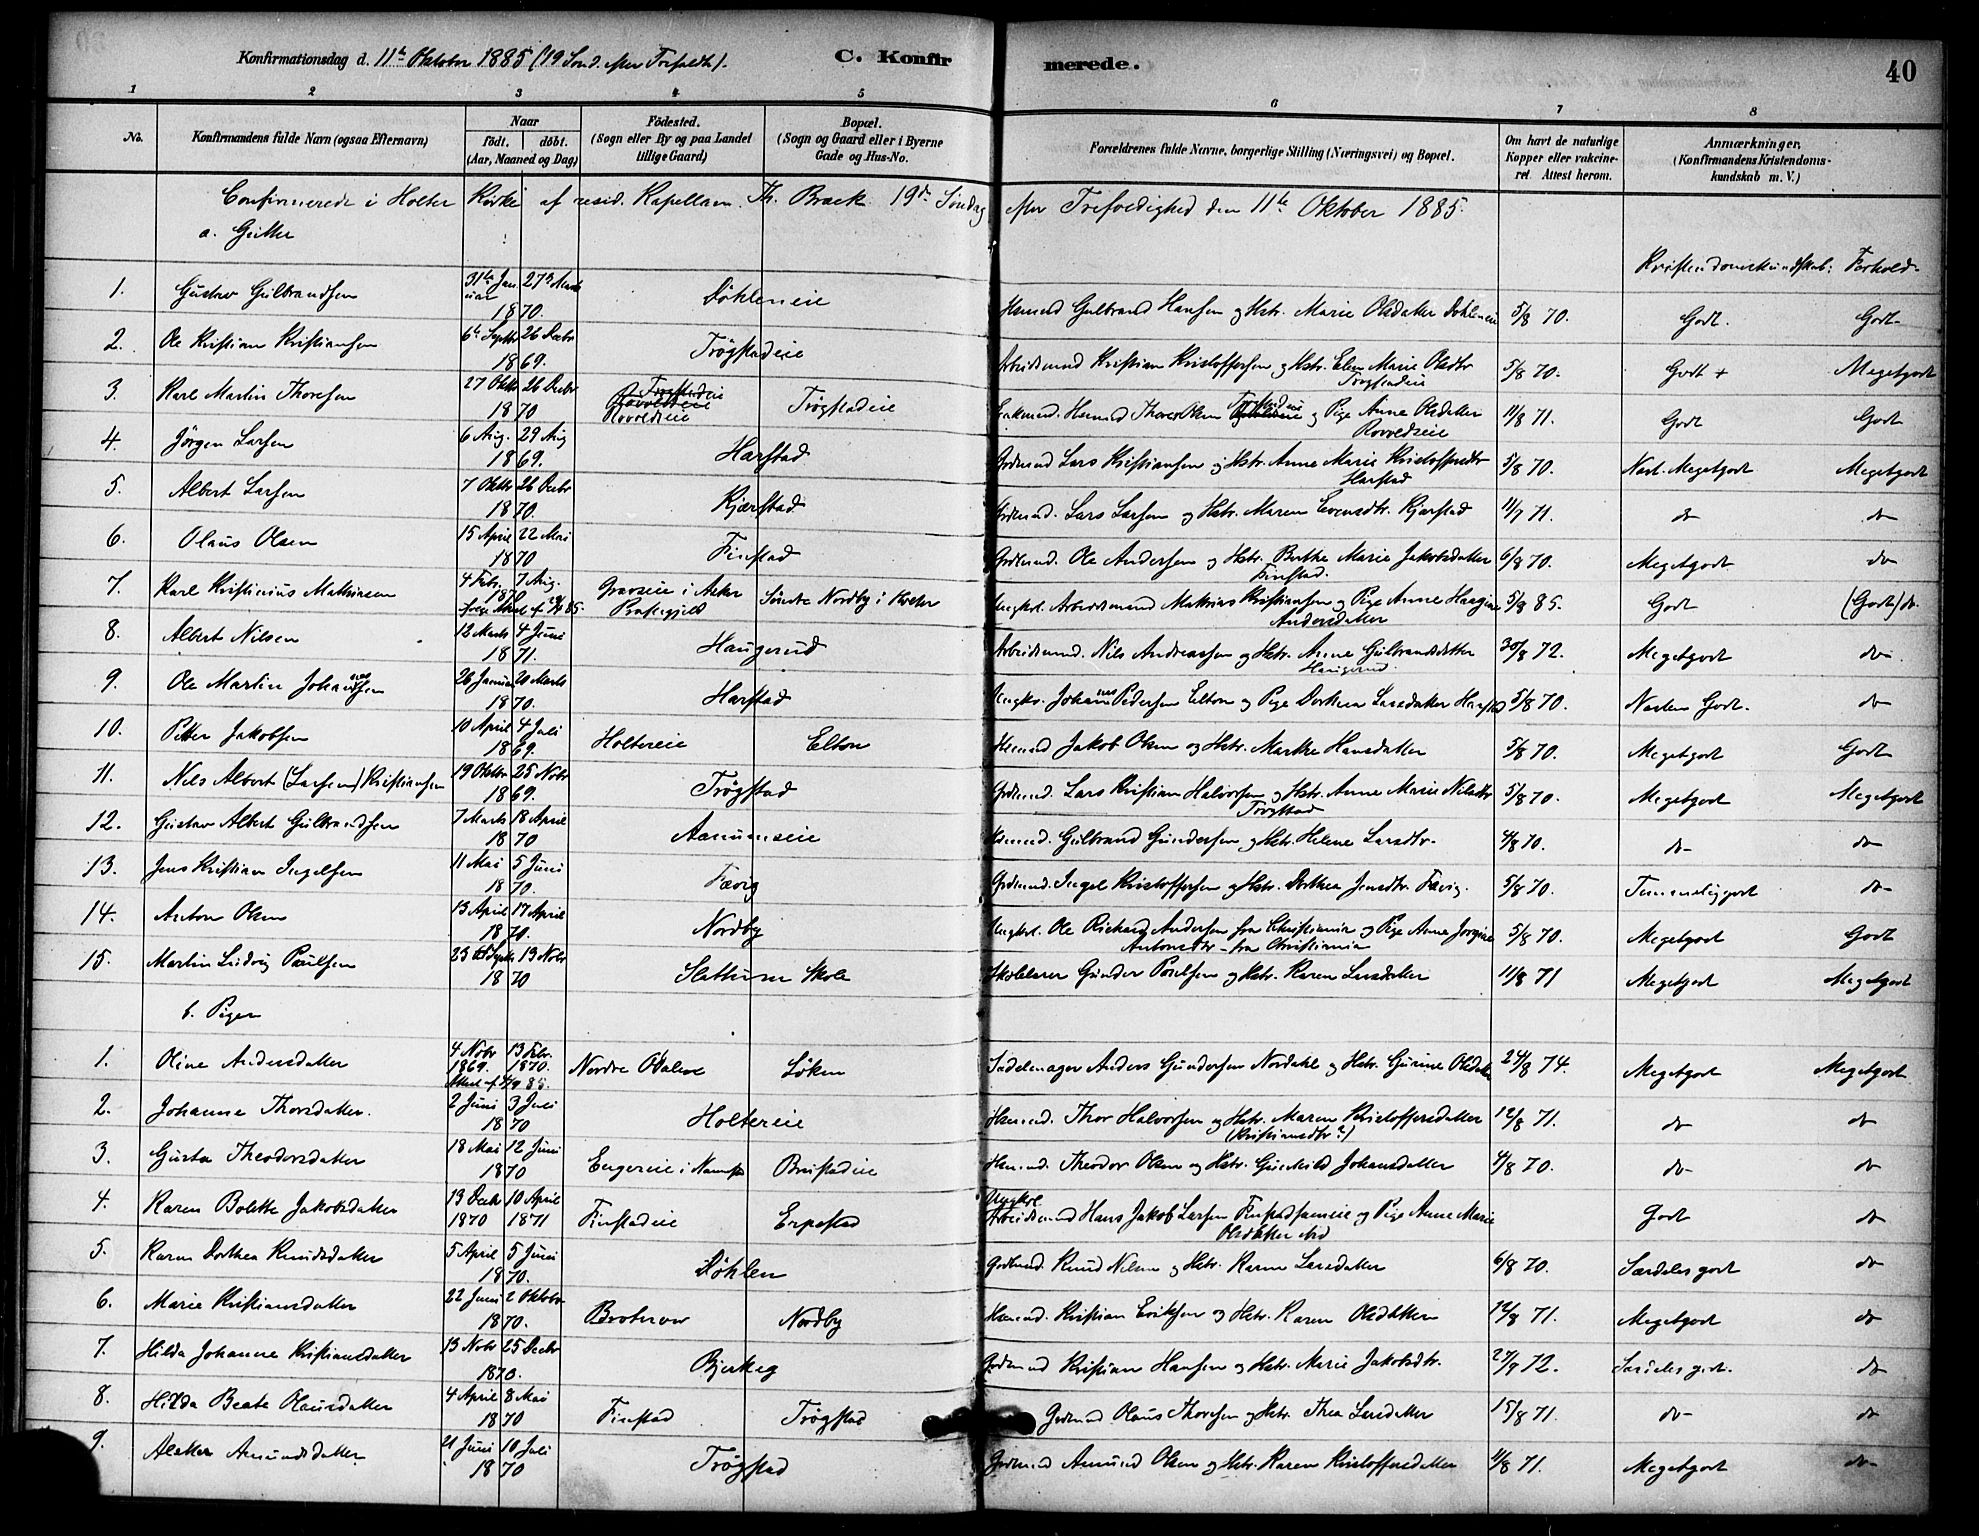 Konfirmationsdag d. 11te Oktober 1885 (19 Sønd. efter Trefoldh).
C. Konfirmerede.
40
1 2 3 4 5 6 7 8
No.
Konfirmandens fulde Navn (ogsaa Efternavn)
Naar
födt. döbt.
(Aar, Maaned og Dag)
Födested.
(Sogn eller By og paa Landet
tillige Gaard)
Bopæl.
(Sogn og Gaard eller i Byerne
Gade og Hus-No.
Forældrenes fulde Navne, borgerlige Stilling (Næringsvei) og Bopæl.
Om havt de naturlige
Kopper eller vakcine-
ret. Attest herom.
Anmærkninger.
(Konfirmandens Kristendoms-
kundskab m. V.)
Confirmerede i Holter Kirke af resid. Kapellan Th. Braek 19de Søndag efter Trefoldighed den 11te Oktober 1885.
a. Gutter
Kristendomskundskab: Forhold
1. Gustav Gulbrandsen 31te Januar 27de Marts 1870. Döhleneie Husmd Gulbrand Hansen og Hstr. Marie Olsdatter Döhleneie 5/8 70. Godt. Godt
2. Ole Kristian Kristiansen 6te Septbr 26 Decbr 1869. Trögstadeie Arbeidsmand Kristian Kristoffersen og Hstr. Elen Marie Olsdtr Trögstadeie 5/8 70. Godt + Megetgodt
3. Karl Martin Thoresen 27 Oktbr 26 Decbr 1870 Trögstadeie Rovoldseie Trögstadeie Husmd Thore Olsen Trögstadeie og Pige Anne Olsdatter Rovoldseie 11/8 71. Godt Godt
4. Jörgen Larsen 6 Aug. 29 Aug 1869. Harstad Grdmand Lars Kristiansen og Hstr. Anne Marie Kristoffersdtr Harstad 5/8 70. Næst. Megetgodt Megetgodt
5. Albert Larsen 7 Oktbr 26 Decbr 1870. Kjærstad Grdmand. Lars Larsen og Hstr. Maren Evensdtr. Kjærstad 11/7 71. do do
6. Olaus Olsen 15 April 22 Mai 1870 Finstad Grdmand. Ole Andersen og Hstr. Berthe Marie Jakobsdatter Finstad. 6/8 70. Megetgodt do
7. Karl Kristinius Mathiesen 4 Febr. 7 Aug. 1870 Gravseie i Asker Præstegjeld Söndre Nordby i Holter Ungkrl. Arbeidsmand Mathias Kristiansen og Pige Anne Haagine Andersdatter 5/8 85. Godt (Godt) do.
8. Albert Nilsen 12 Marts 4 Juni 1871. Haugerud Arbeidsmand. Nils Andreassen og Hstr. Anne Gulbrandsdatter Haugerud. 30/8 72. Megetgodt do
9. Ole Martin Johannesen 26 Januar 20 Marts 1870. Harstad Ungkr. Johannes Pedersen Elton og Pige Dorthea Larsdatter Harstad 5/8 70. Næsten Godt. do
10. Petter Jakobsen 10 April 4 Juli 1869. Holtereie Elton Husmand Jakob Olsen og Hstr. Marthe Hansdatter 5/8 70. Megetgodt Godt
11. Nils Albert (Larsen) Kristiansen 19 Oktbr 25 Novbr 1869. Trögstad Grdmand. Lars Kristian Halvorsen og Hstr. Anne Marie Nilsdtr Trögstad 5/8 70. Megetgodt Megetgodt
12. Gustav Albert Gulbrandsen 7 Marts 18 April 1870 Aanumseie Husmand. Gulbrand Gundersen og Hstr. Helene Larsdtr. 4/8 70. do do
13. Jens Kristian Ingelsen 11 Mai 5 Juni 1870. Fævig Grdmand. Ingel Kristoffersen og Hstr. Dorthea Jensdtr. Fævig. 5/8 70. Temmeliggodt do
14. Anton Olsen 13 April 17 April 1870. Nordby Ungkrl. Ole Richard Andersen fra Christiania og Pige Anne Jorgine Antonsdtr fra Christiania 5/8 70. Megetgodt Godt
15. Martin Ludvig Paulsen 23 Septbr 13 Novbr 1870 Slattum Skole Skolelærer Gunder Paulsen og Hstr. Karen Larsdatter 11/8 71 Megetgodt Megetgodt
b. Piger
1. Oline Andersdatter 4 Novbr 1869. 13 Febr. 1870. Nordre Odalen Löken Sadelmager Anders Gundersen Nordahl og Hstr. Gurine Olsdatter 24/8 74. Megetgodt Megetgodt
2. Johanne Thorsdatter. 2 Juni 3 Juli 1870 Holtereie Husmand. Thor Halvorsen og Hstr. Maren Kristoffersdatter (Kristiansdtr?) 12/8 71. do do
3. Gusta Theodorsdatter 18 Mai 12 Juni 1870 Engereie i Nannestad Brustadeie Husmd. Theodor Olsen og Hstr. Gunhild Johansdatter 4/8 70. do do
4. Karen Bolette Jakobsdatter 13 Decbr 1870 10 April 1871 Finstadeie Erpestad Ungkrl. Arbeidsmand Hans Jakob Larsen og Pige Anne Marie Olsdatter Godt do
5. Karen Dorthea Knudsdatter 5 April 5 Juni 1870. Döhlen Grdmand. Knud Nilsen og Hstr. Karen Larsdatter 6/8 70. Særdeles godt do
6. Marie Kristiansdatter 22 Juni 2 Oktober 1870. Broterud Nordby Husmand. Kristian Eriksen og Hstr. Karen Olsdatter 12/8 71. Megetgodt do
7. Hilda Johanne Kristiansdatter 13 Novbr 25 Decbr 1870. Bjerkeg Grdmand Kristian Hansen og Hstr. Marie Jakobsdtr. 27/9 72. Særdeles godt. do
8. Hilda Beate Olausdatter 4 April 8 Mai 1870 Finstad Trögstad Grdmand Olaus Thoresen og Hstr. Thea Larsdatter 15/8 71. do do
9. Amundsdatter 21 Juni 10 Juli 1870 Trögstad Grdmand Amund Olsen og Hstr. Karen Kristoffersdatter 11/8 71. Megetgodt do